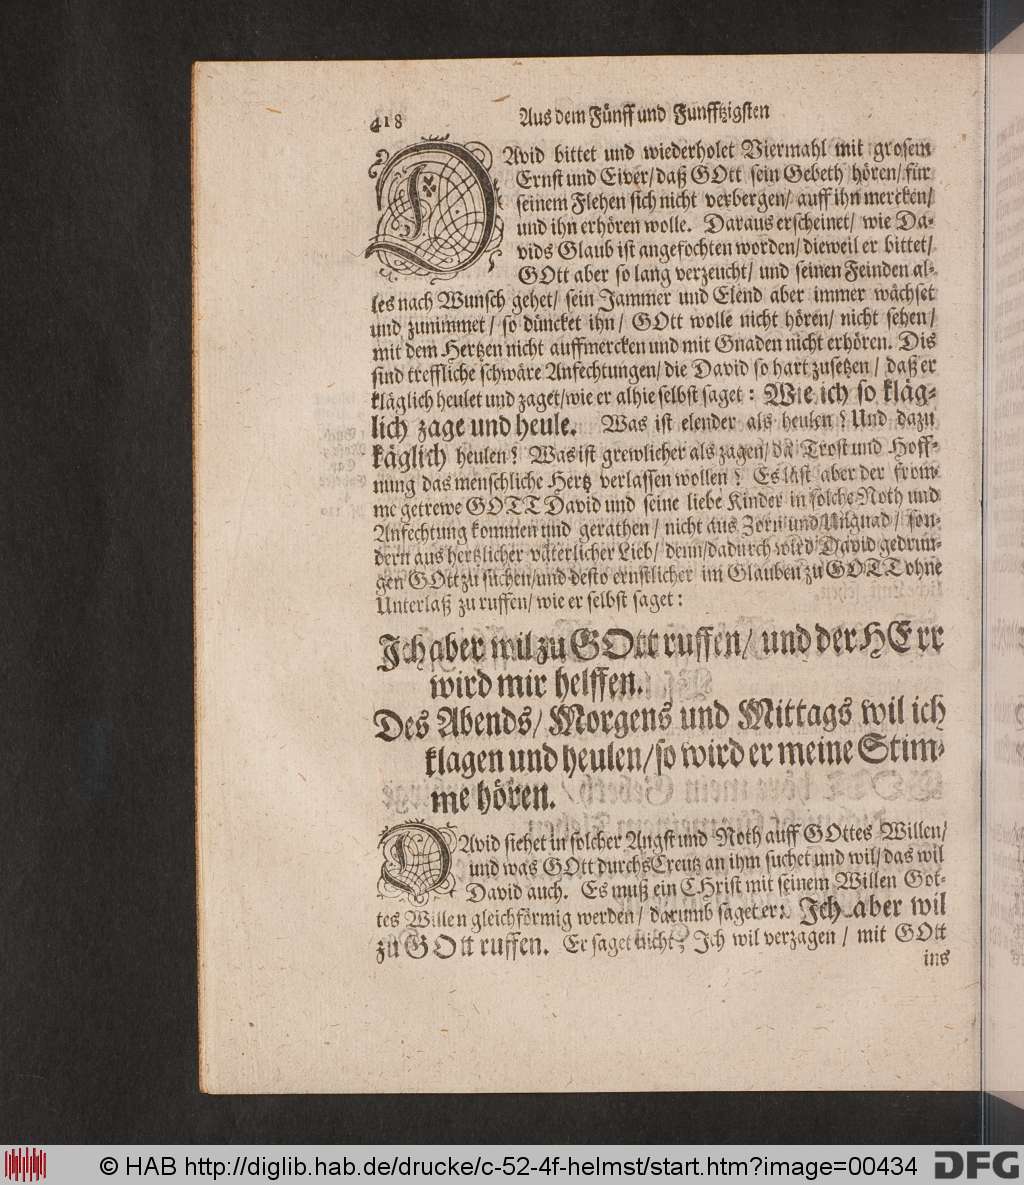 418
Aus dem Fünff und Funfftzigsten
DAvid bittet und wiederholet Viermahl mit grosem
Ernst und Eiver/ daß GOtt sein Gebeth hören/ für
seinem Flehen sich nicht verbergen/ auff ihn mercken/
und ihn erhören wolle. Daraus erscheinet/ wie Da-
vids Glaub ist angefochten worden/ dieweil er bittet/
GOtt aber so lang verzeucht/ und seinen Feinden al-
les nach Wunsch gehet/ sein Jammer und Elend aber immer wächset
und zunimmet/ so düncket ihn/ GOtt wolle nicht hören/ nicht sehen/
mit dem Hertzen nicht auffmercken und mit Gnaden nicht erhören. Dis
sind treffliche schwäre Anfechtungen/ die David so hart zusetzen/ daß er
kläglich heulet und zaget/ wie er alhie selbst saget: Wie ich so kläg-
lich zage und heule. Was ist elender als heulen? Und dazu
käglich heulen? Was ist grewlicher als zagen/ da Trost und Hoff-
nung das menschliche Hertz verlassen wollen? Es läst aber der from-
me getrewe GOTT David und seine liebe Kinder in solche Noth und
Anfechtung kommen und gerathen/ nicht aus Zorn und Ungnad/ son-
dern aus hertzlicher väterlicher Lieb/ denn/ dadurch wird David gedrun-
gen GOtt zu suchen/ und desto ernstlicher im Glauben zu GOTT ohne
Unterlaß zu ruffen/ wie er selbst saget:
Ich aber wil zu GOtt ruffen/ und der HErr
wird mir helffen.
Des Abends/ Morgens und Mittags wil ich
klagen und heulen/ so wird er meine Stim-
me hören.
DAvid siehet in solcher Angst und Noth auff GOttes Willen/
und was GOtt durchs Creutz an ihm suchet und wil/ das wil
David auch. Es muß ein CHrist mit seinem Willen Got-
tes Willen gleichförmig werden/ darumb saget er: Ich aber wil
zu GOtt ruffen. Er saget nicht; Ich wil verzagen/ mit GOtt
ins
© HAB http://diglib.hab.de/drucke/c-52-4f-helmst/start.htm?image=00434
DFG